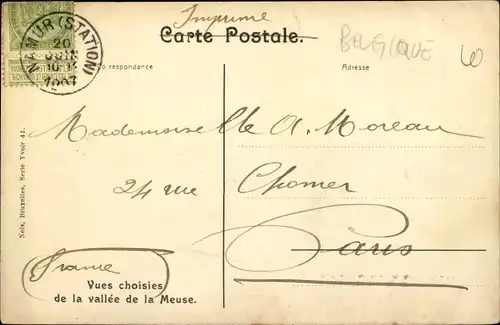 Imprimé
Carte Postale.
BELGIQUE
NAMUR (STATION)
20
JUIN
1907
Correspondance
Adresse
Mademoiselle A. Moreau
24 rue Chomer
Paris
France
Vues choisies
de la vallée de la Meuse.
Nels, Bruxelles, Serie Yvoir 41.